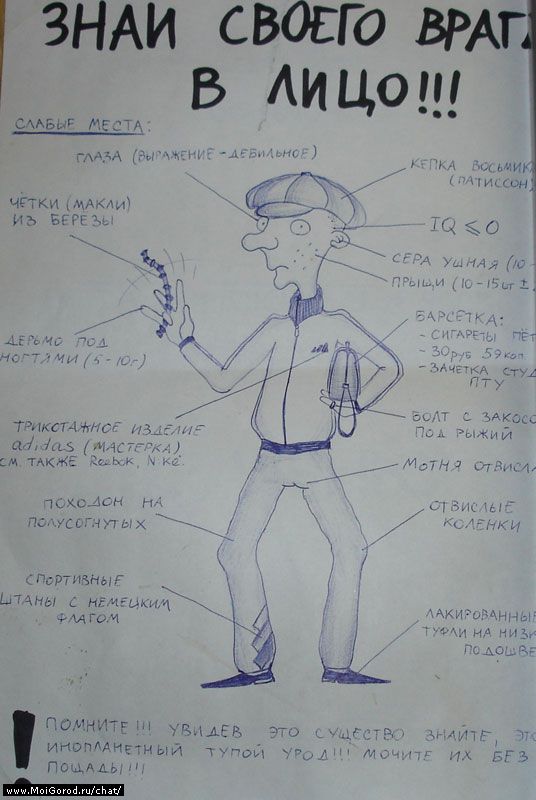 ЗНАЙ СВОЕГО ВРАГА
В ЛИЦО!!!
СЛАБЫЕ МЕСТА:
ГЛАЗА (ВЫРАЖЕНИЕ-ДЕБИЛЬНОЕ)
КЕПКА ВОСЬМИК
(ПАТИССОН)
ЧЁТКИ (МАКЛИ)
ИЗ БЕРЕЗЫ
IQ ⩽ 0
СЕРА УШНАЯ (10-
ПРЫЩИ (10-15шт ±
ДЕРЬМО ПОД
НОГТЯМИ (5-10г)
БАРСЕТКА:
- СИГАРЕТЫ ПЁТ
- 30руб 59коп
- ЗАЧЕТКА СТУД
ПТУ
ТРИКОТАЖНОЕ ИЗДЕЛИЕ
adidas (МАСТЕРКА)
СМ. ТАКЖЕ Reebok, Nike.
БОЛТ С ЗАКОСО
ПОД РЫЖИЙ
МОТНЯ ОТВИСЛА
ПОХОДОН НА
ПОЛУСОГНУТЫХ
ОТВИСЛЫЕ
КОЛЕНКИ
СПОРТИВНЫЕ
ШТАНЫ С НЕМЕЦКИМ
ФЛАГОМ
ЛАКИРОВАННЫЕ
ТУФЛИ НА НИЗК
ПОДОШВЕ
! ПОМНИТЕ!!! УВИДЕВ ЭТО СУЩЕСТВО ЗНАЙТЕ, ЭТО
ИНОПЛАНЕТНЫЙ ТУПОЙ УРОД!!! МОЧИТЕ ИХ БЕЗ
ПОЩАДЫ!!!
www.MoiGorod.ru/chat/